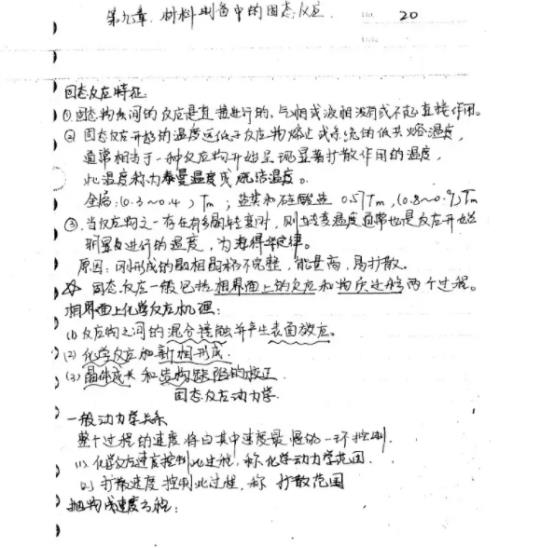 第九章. 材料制备中的固态反应
No. 20
固态反应特征:
① 固态物质间的反应是直接进行的, 气相或液相没有或不起直接作用。
② 固态反应开始的温度远低于反应物熔点或系统的低共熔温度,
通常相当于一种反应物开始呈现显著扩散作用的温度,
此温度称为泰曼温度或烧结温度。
金属: (0.3~0.4) Tm ; 盐类和硅酸盐 0.57Tm, (0.8~0.9)Tm
③. 当反应物之一存在有多晶转变时, 则转变温度通常也是反应开始
明显进行的温度, 为海得华定律。
原因: 刚形成的新相晶格不完整, 能量高, 易扩散。
固态反应一般包括相界面上的反应和物质迁移两个过程。
相界面上化学反应机理:
(1) 反应物之间的混合接触并产生表面效应。
(2) 化学反应和新相形成.
(3) 晶体成长和结构缺陷的校正.
固态反应动力学
一般动力学关系
整个过程的速度将由其中速度最慢的一环控制.
(1) 化学反应速度控制此过程, 称化学动力学范围.
(2) 扩散速度控制此过程, 称 扩散范围
抛物线速度方程: